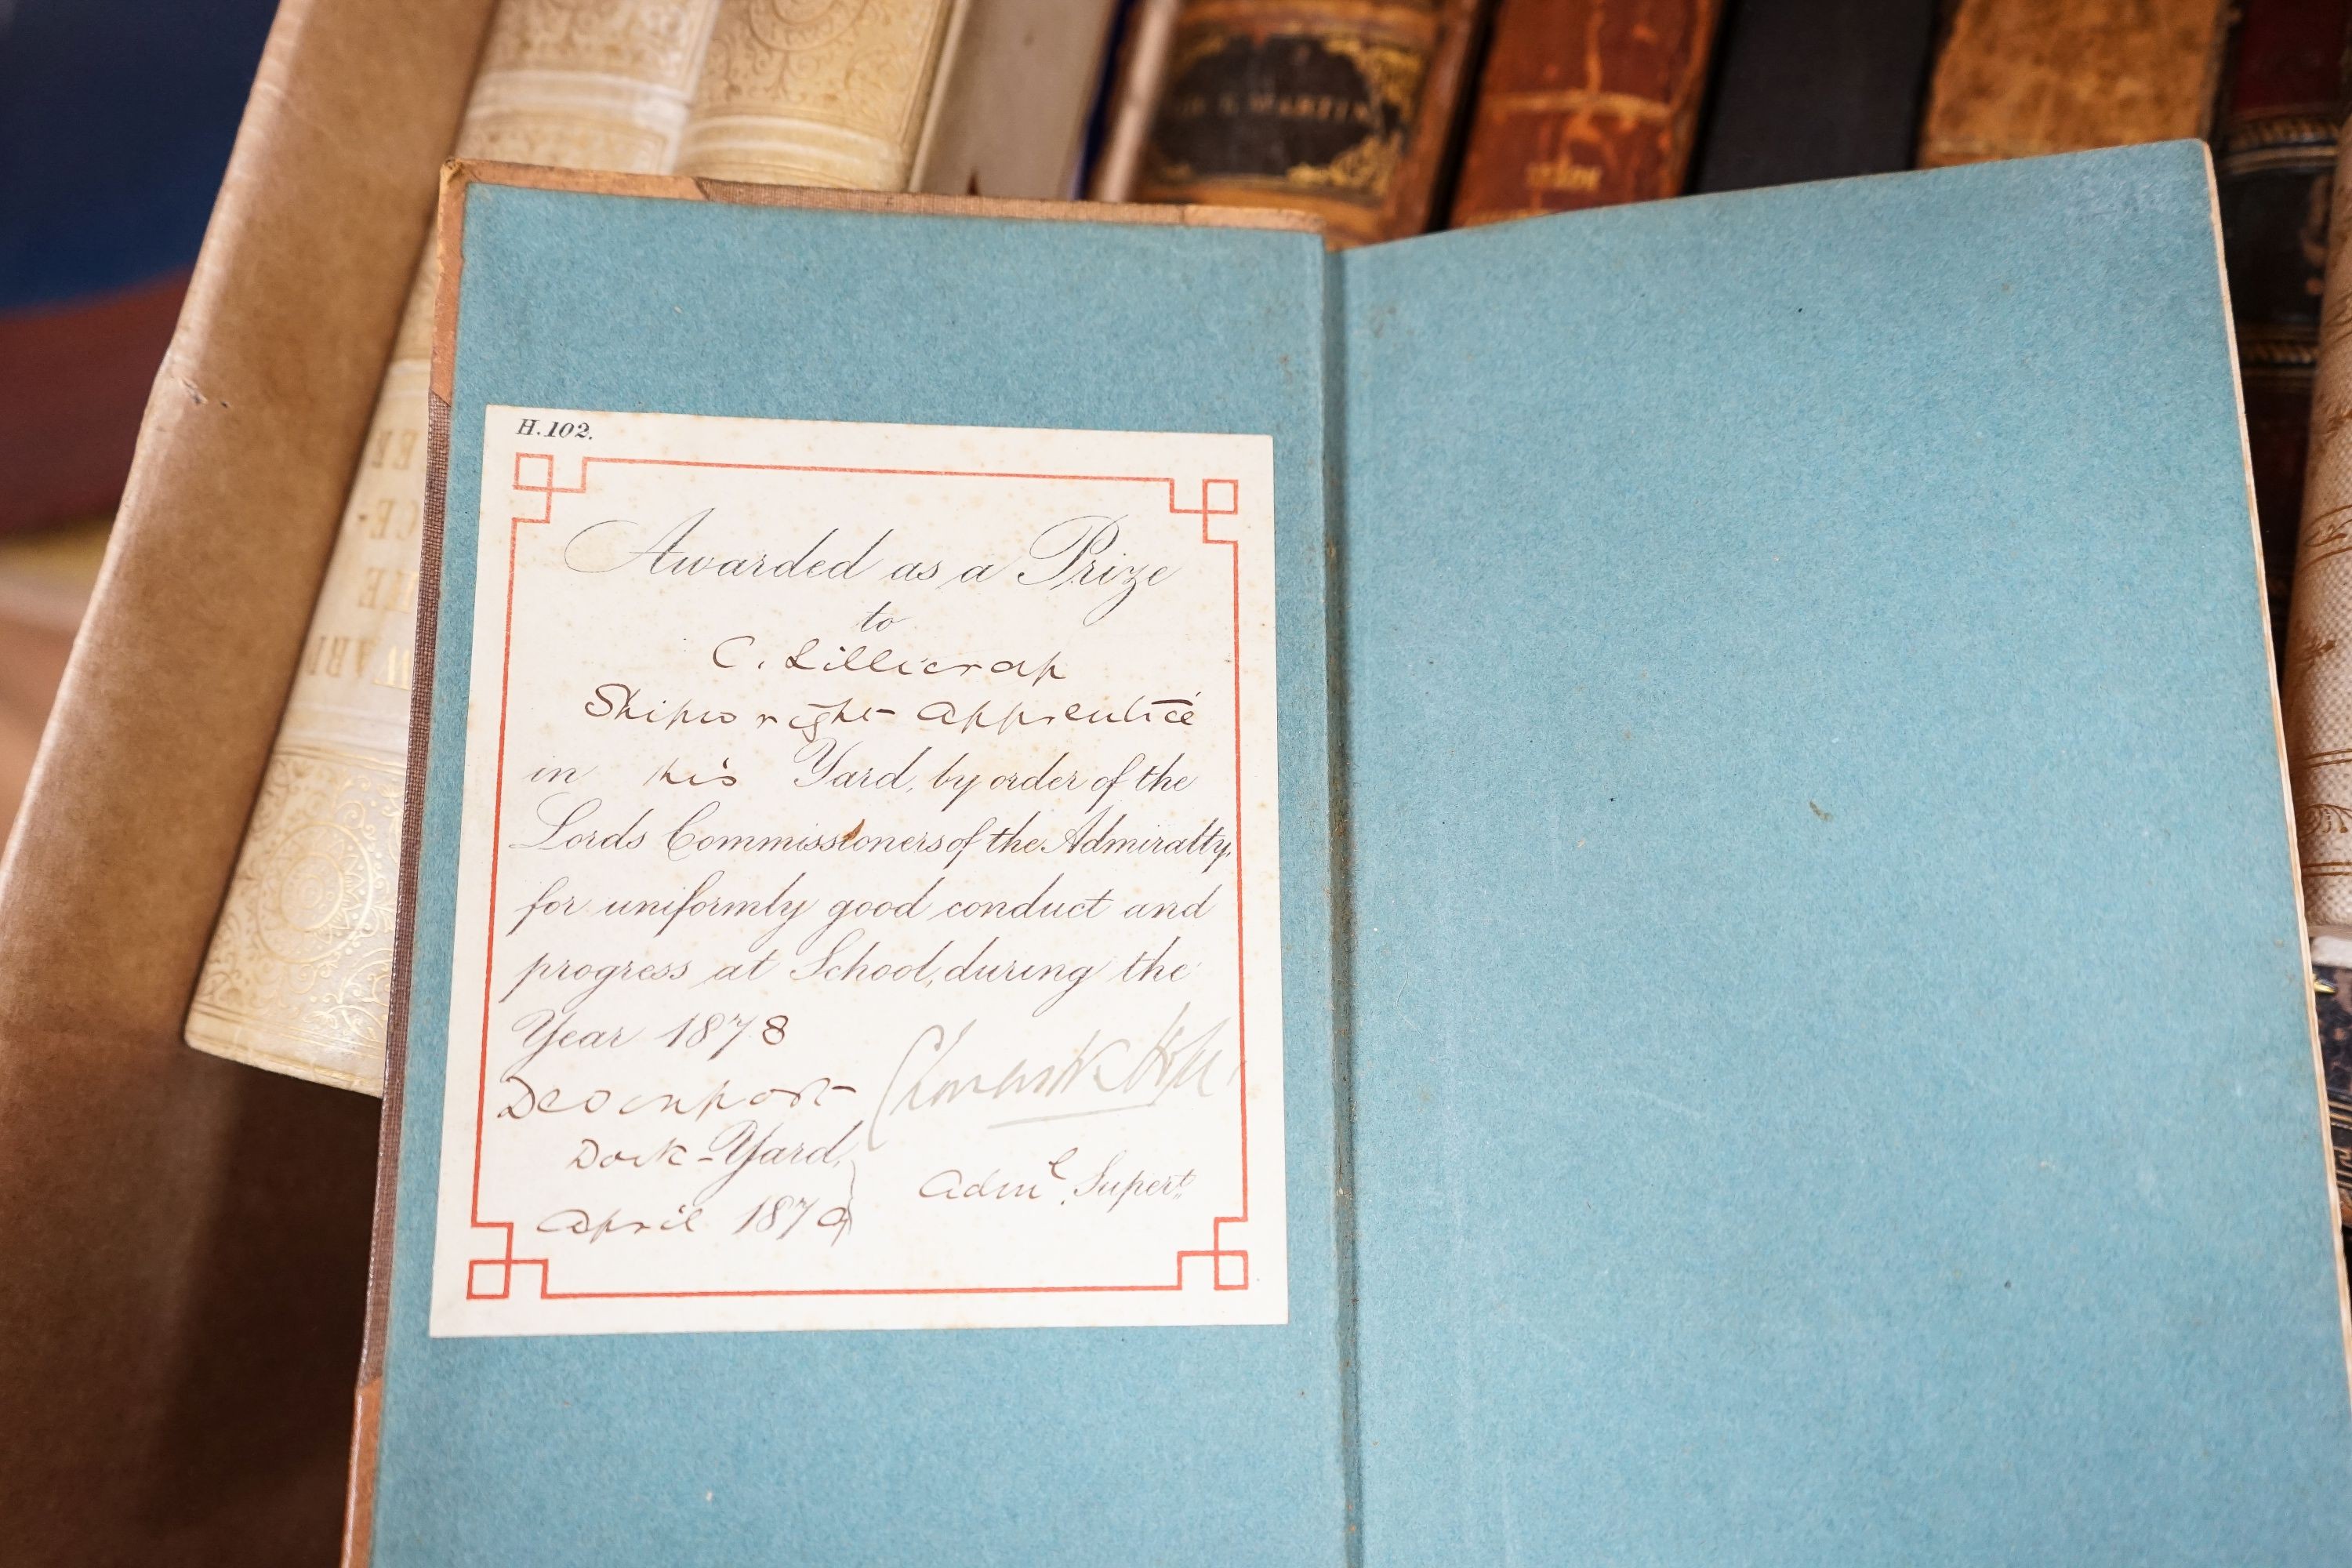 MARTIN
H.102.
Awarded as a Prize
to
C. Lillicrap
Shipwright Apprentice
in this Yard, by order of the
Lords Commissioners of the Admiralty,
for uniformly good conduct and
progress at School, during the
Year 1878
Devonport
Dock-Yard,
April 1879
Adml. Supert.